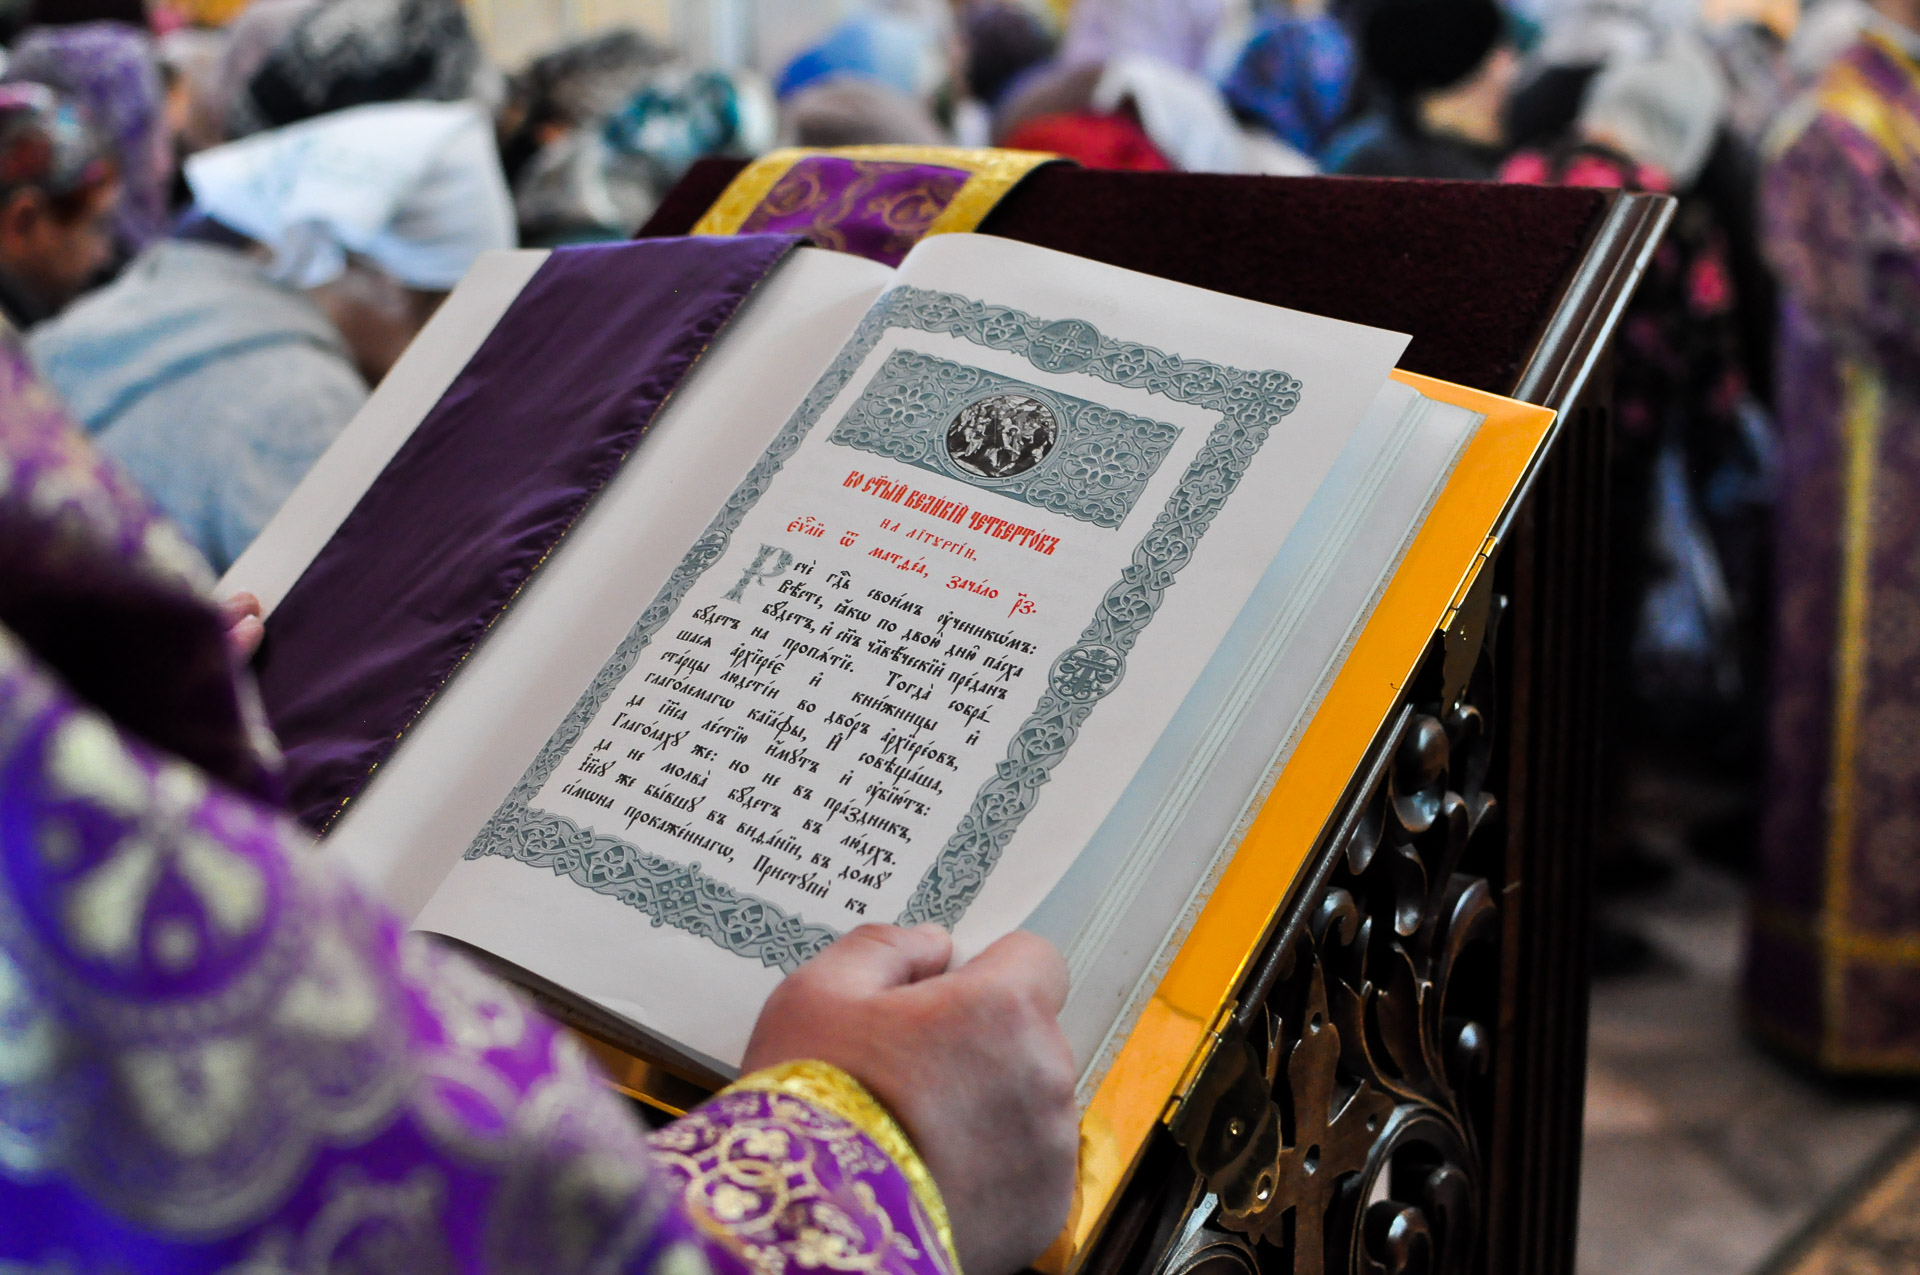 Во ст҃ы́й вели́кїй четверто́къ
на лїтꙋргі́и,
є҆ѵⷢ҇лїе ѿ матѳе́а, зача́ло р҃з.
Речѐ гдⷭ҇ь свои̑мъ ᲂу҆ченикѡ́мъ:
вѣ́сте, ꙗ҆́кѡ по двою̀ дню̑ па́сха
бꙋ́детъ, и҆ сн҃ъ чл҃вѣ́ческїй пре́данъ
бꙋ́детъ на пропѧ́тїе. Тогда̀ собра́
шасѧ а҆рхїере́є и҆ кни́жницы и҆
ста́рцы людсті́и во дво́ръ а҆рхїере́овъ,
глаго́лемагѡ каїа́фы, И҆ совѣща́ша,
да і҆и҃са ле́стїю и҆́мꙋтъ и҆ ᲂу҆бїю́тъ:
Глаго́лахꙋ же: но не въ пра́здникъ,
да не молва̀ бꙋ́детъ въ лю́дехъ.
І҆и҃сꙋ же бы́вшꙋ въ виѳа́нїи, въ домꙋ̀
сі́мѡна прокаже́ннагѡ, Пристꙋпѝ къ